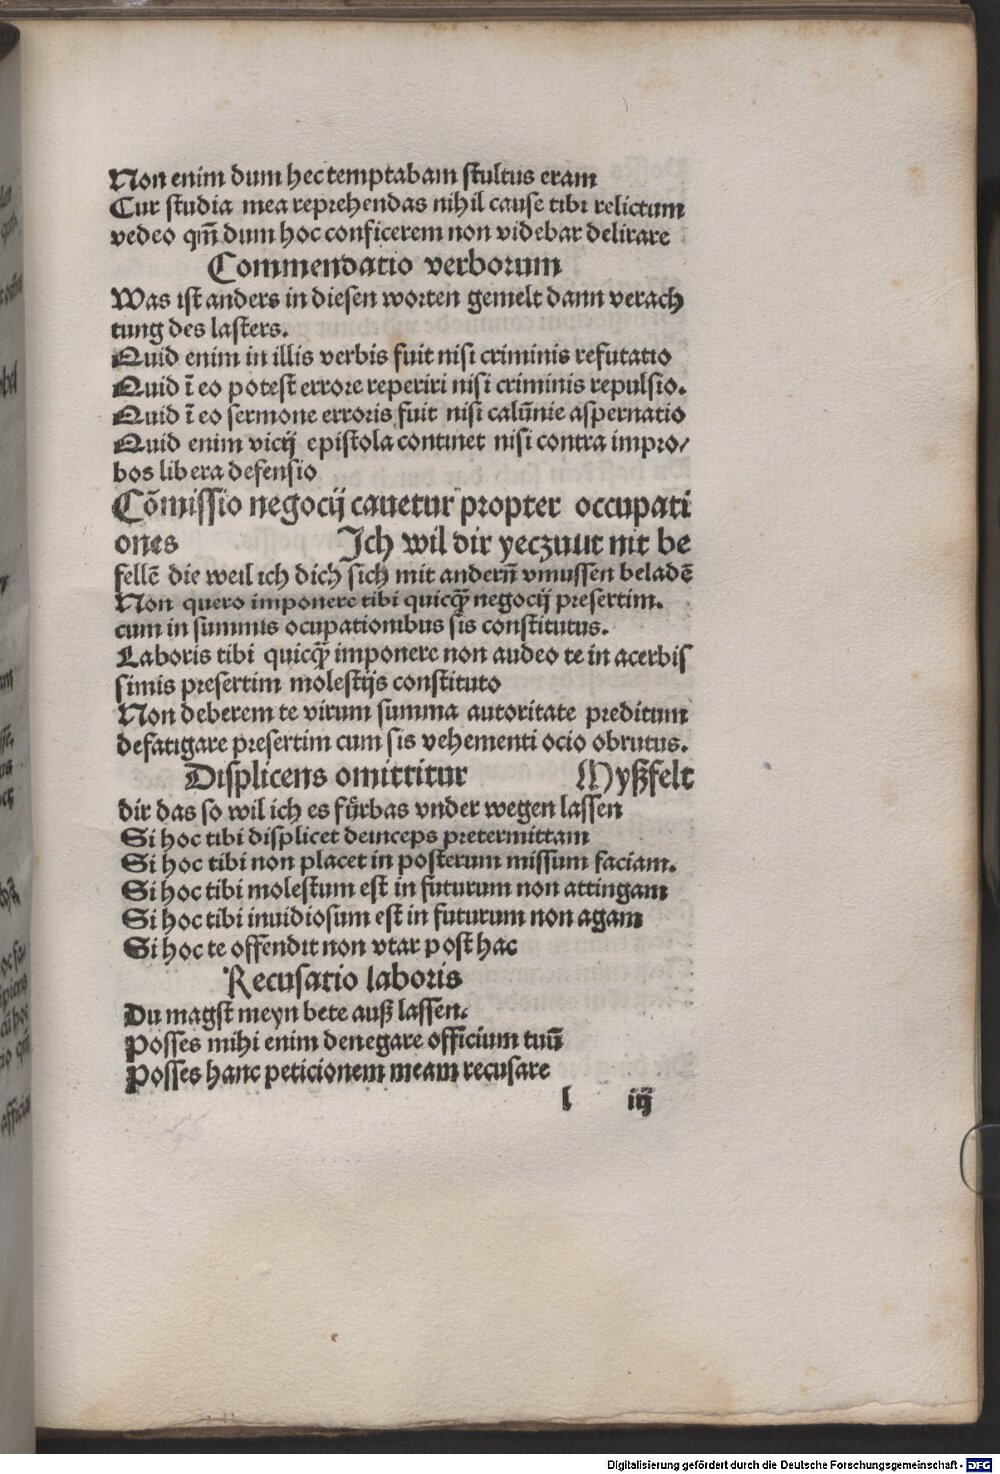 Non enim dum hec temptabam stultus eram
Cur studia mea reprehendas nihil cause tibi relictum
vedeo qm̄ dum hoc conficerem non videbar delirare
Commendatio verborum
Was ist anders in diesen worten gemelt dann verach
tung des lasters.
Quid enim in illis verbis fuit nisi criminis refutatio
Quid ī eo potest errore reperiri nisi criminis repulsio.
Quid ī eo sermone erroris fuit nisi calūnie aspernatio
Quid enim vicij epistola continet nisi contra impro/
bos libera defensio
Cōmissio negocij cauetur propter occupati
ones Ich wil dir yeczuut nit be
fellē die weil ich dich sich mit andern̄ vmussen beladē
Non quero imponere tibi quicq̄ negocij presertim.
cum in summis ocupationibus sis constitutus.
Laboris tibi quicq̄ imponere non audeo te in acerbis
simis presertim molestijs constituto
Non deberem te virum summa autoritate preditum
defatigare presertim cum sis vehementi ocio obrutus.
Displicens omittitur Myßfelt
dir das so wil ich es fürbas vnder wegen lassen
Si hoc tibi displicet deinceps pretermittam
Si hoc tibi non placet in posterum missum faciam.
Si hoc tibi molestum est in futurum non attingam
Si hoc tibi inuidiosum est in futurum non agam
Si hoc te offendit non vtar post hac
Recusatio laboris
Du magst meyn bete auß lassen.
Posses mihi enim denegare officium tuū
Posses hanc peticionem meam recusare
l iij
Digitalisierung gefördert durch die Deutsche Forschungsgemeinschaft - DFG